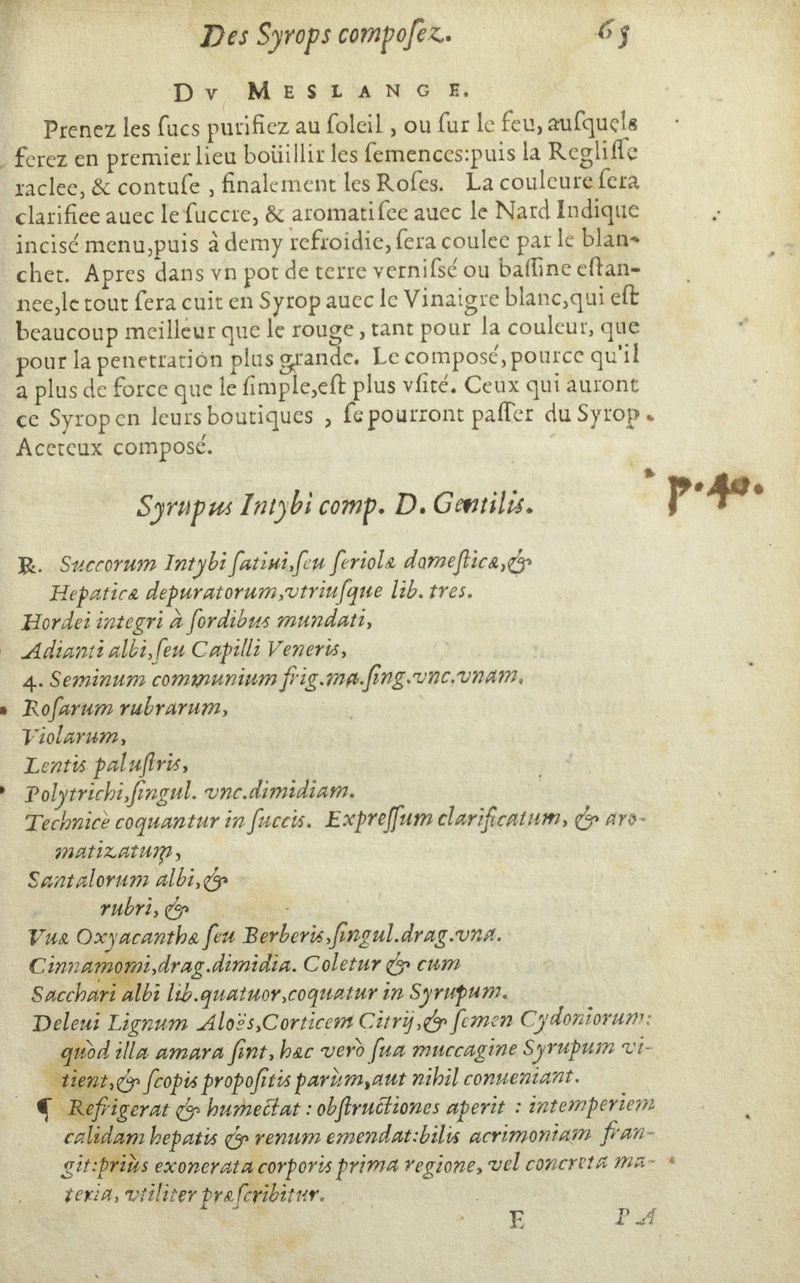 Des Syrops compoſez. 65
DV MESLANGE.
Prenez les ſucs purifiez au ſoleil, ou ſur le feu, auſquels
ferez en premier lieu boüillir les ſemences:puis la Regliſſe
raclee, & contuſe, finalement les Roſes. La couleure ſera
clarifiee auec le ſuccre, & aromatiſee auec le Nard Indique
incisé menu,puis à demy refroidie, ſera coulee par le blan-
chet. Apres dans vn pot de terre verniſsé ou baſſine eſtan-
nee,le tout ſera cuit en Syrop auec le Vinaigre blanc,qui eſt
beaucoup meilleur que le rouge, tant pour la couleur, que
pour la penetration plus grande. Le composé, pource qu'il
a plus de force que le ſimple,eſt plus vſité. Ceux qui auront
ce Syrop en leurs boutiques, ſe pourront paſſer du Syrop
Acereux composé.
p.40.
Syrupus Intybi comp. D. Gentilis.
℞. Succorum Intybi ſatiui,ſeu ſeriolæ domeſticæ,&
Hepaticæ depuratorum,vtriuſque lib. tres.
Hordei integri à ſordibus mundati,
Adianti albi,ſeu Capilli Veneris,
4. Seminum communium frig.ma.ſing.vnc.vnam.
Roſarum rubrarum,
Violarum,
Lentis paluſtris,
Polytrichi,ſingul. vnc.dimidiam.
Technicè coquantur in ſuccis. Expreſſum clarificatum, & aro-
matizatum,
Santalorum albi,&
rubri, &
Vuæ Oxyacanthæ ſeu Berberis,ſingul.drag.vna.
Cinnamomi,drag.dimidia. Coletur & cum
Sacchari albi lib.quatuor,coquatur in Syrupum.
Deleui Lignum Aloës,Corticem Citrij,& ſemen Cydoniorum:
quòd illa amara ſint, hæc verò ſua muccagine Syrupum vi-
tient,& ſcopis propoſitis parùm,aut nihil conueniant.
¶ Refrigerat & humectat: obſtructiones aperit: intemperiem
calidam hepatis & renum emendat:bilis acrimoniam fran-
git:priùs exonerata corporis prima regione, vel concreta ma-
teria, vtiliter præſcribitur.
E PA